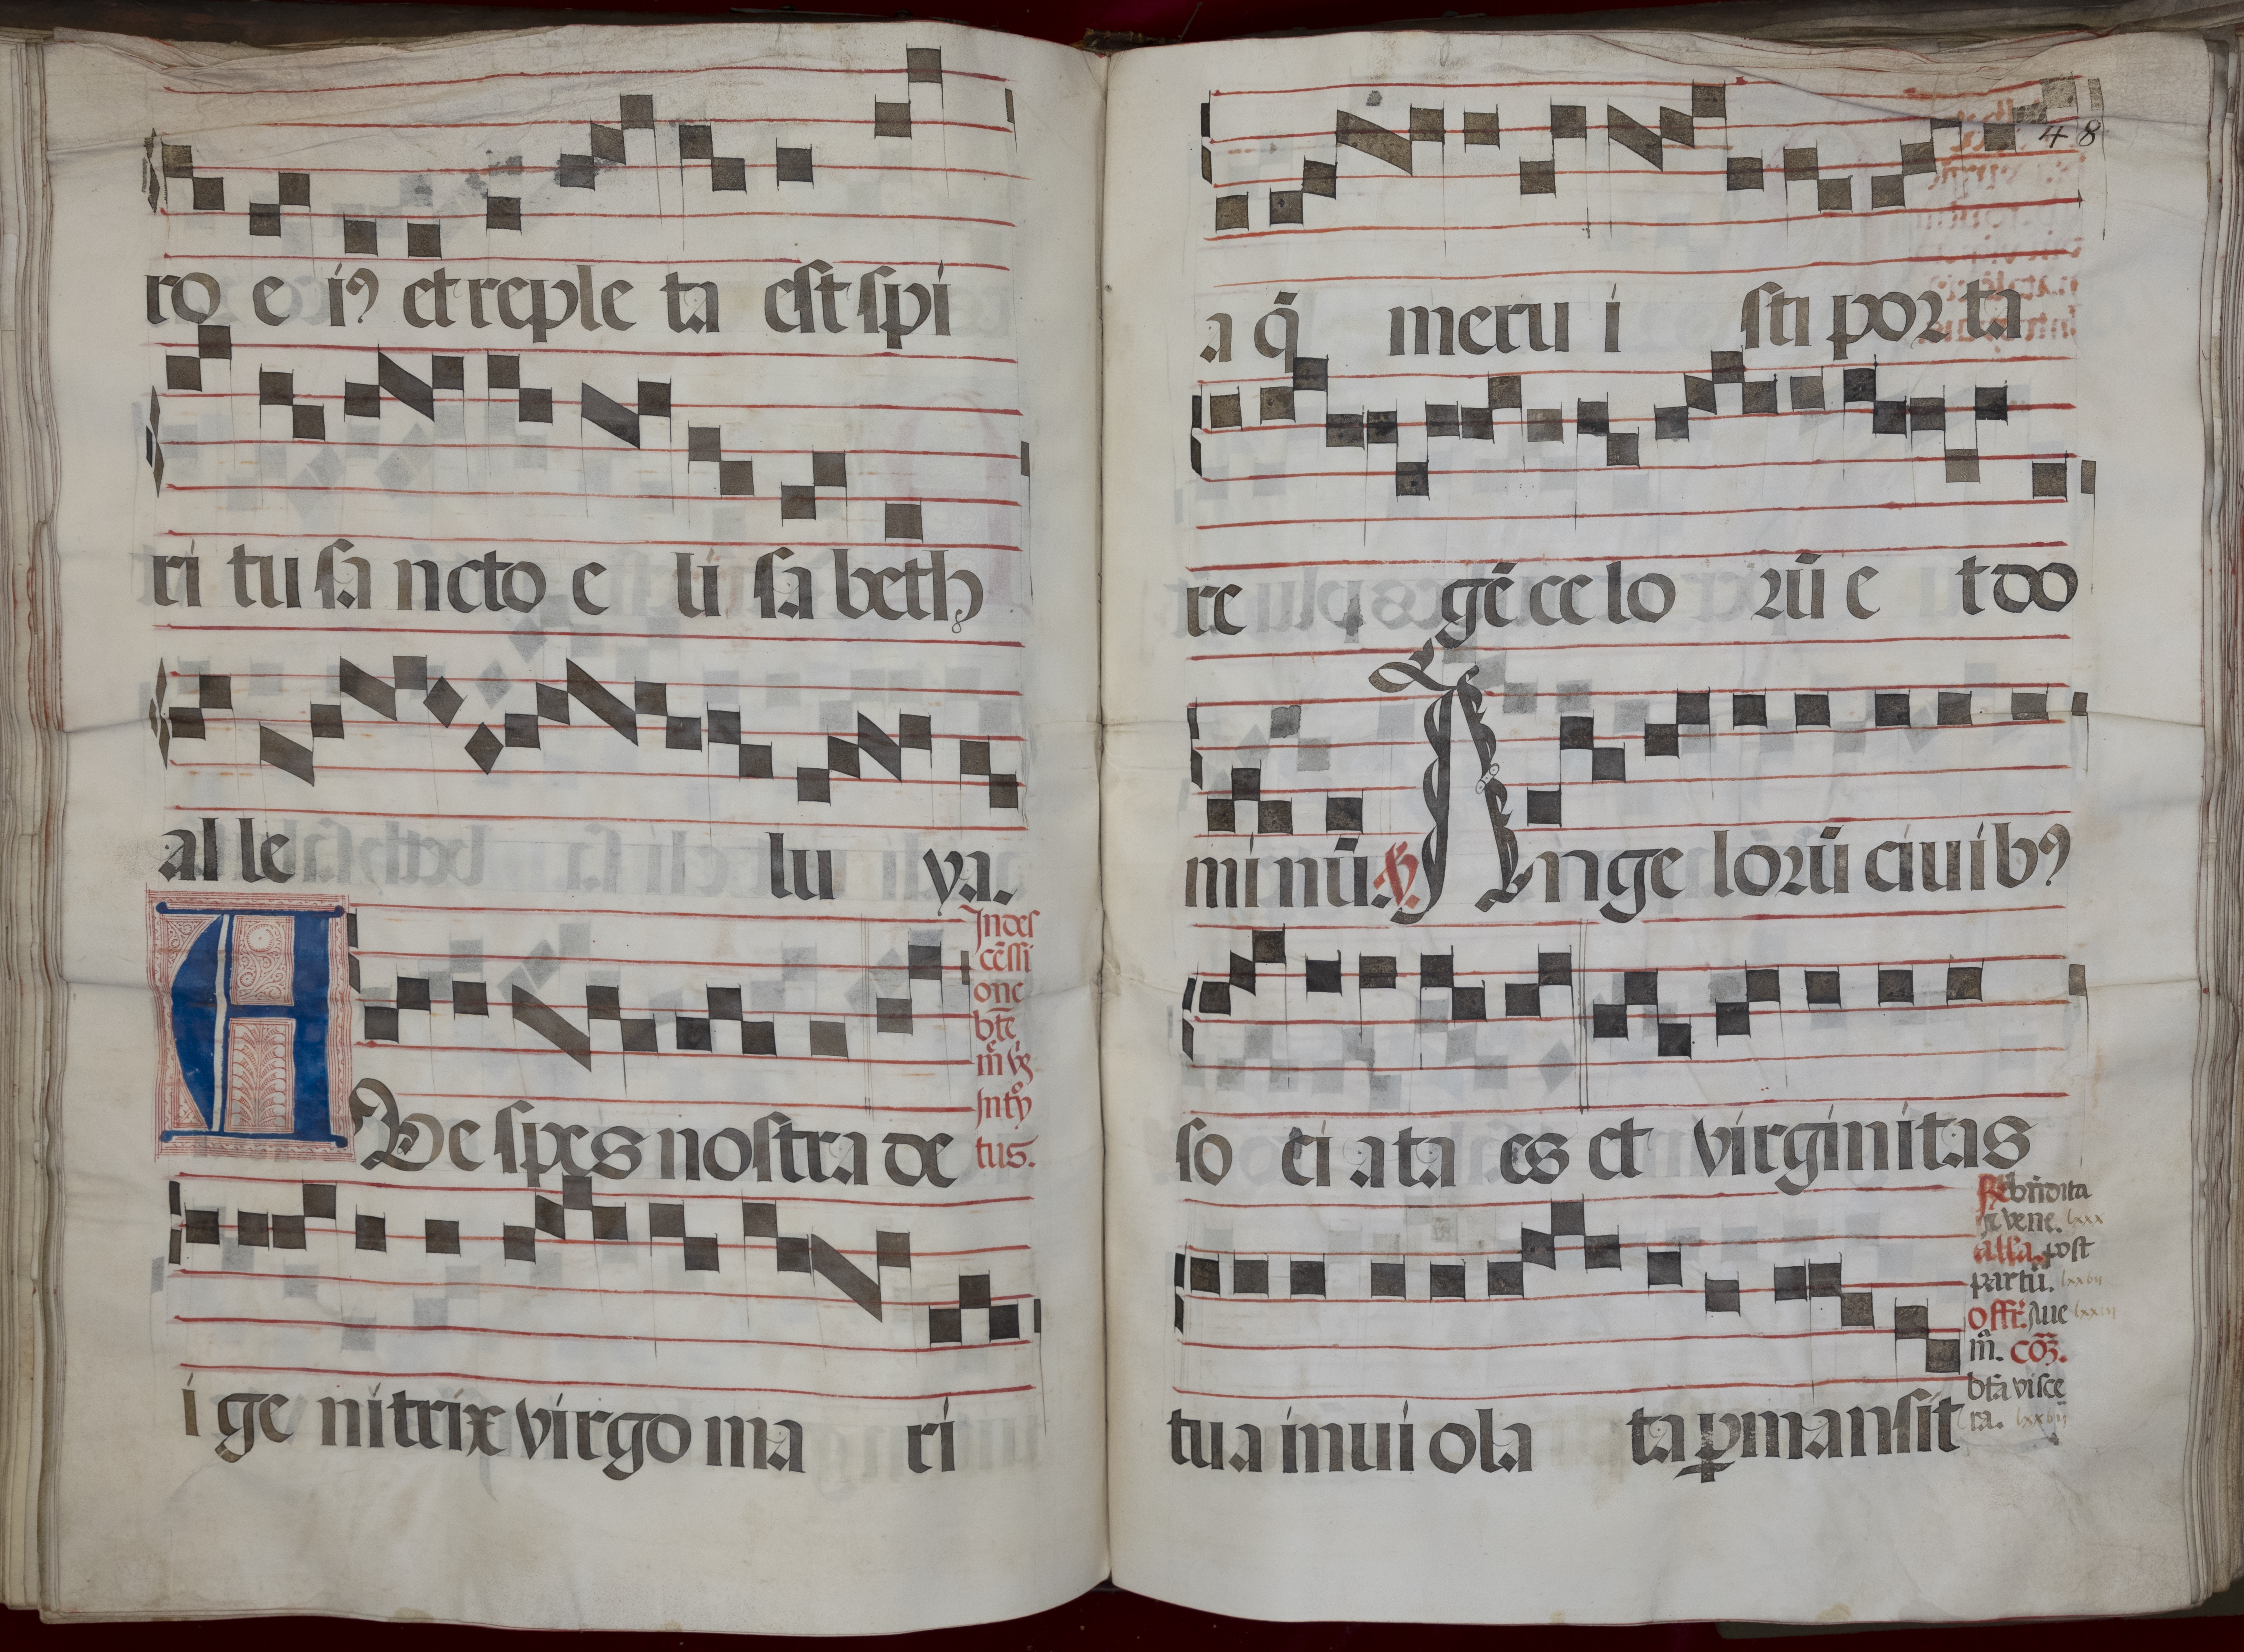 ro e iꝰ et reple ta est spi
ri tu sa ncto e li sa beth
al le lu ya.
In des
cēssi
one
bte
m̄ v̄g
Introy
tus.
Ave spes nostra de
i ge nitrix virgo ma ri
48
a q̄ meru i sti por ta
re gē ce lo rū e t do
mi nū. ℣. Ange lorū ciuibꝰ
so ci ata es et virginitas
tua inui ola ta ꝑmansit
℟ bn̄dita
⁊ vene. lxxx
all'a. post
partū. lxxvii
offr̄. Aue
m̄. cōꝫ.
bt̄a visce
ra. lxxvii